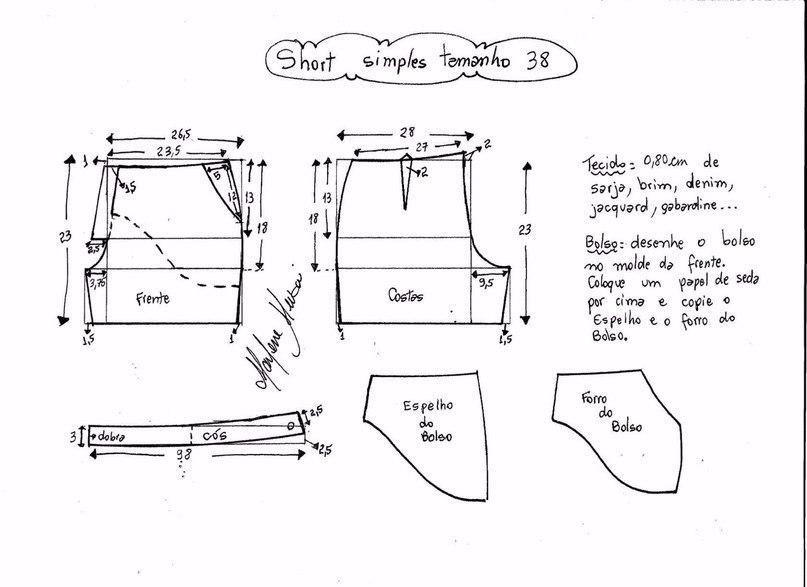 Short simples tamanho 38
26,5
23,5
1
1,5
5
12
13
18
23
2,5
3,75
Frente
1,5
1
28
27
2
2
13
18
23
9,5
Costas
1
1,5
Tecido= 0,80cm de
sarja, brim, denim,
jacquard, gabardine...
Bolso= desenhe o bolso
no molde da frente.
Coloque um papel de seda
por cima e copie o
Espelho e o forro do
Bolso.
Marlene Mukai
3
dobra
cós
2,5
2,5
98
Espelho
do
Bolso
Forro
do
Bolso